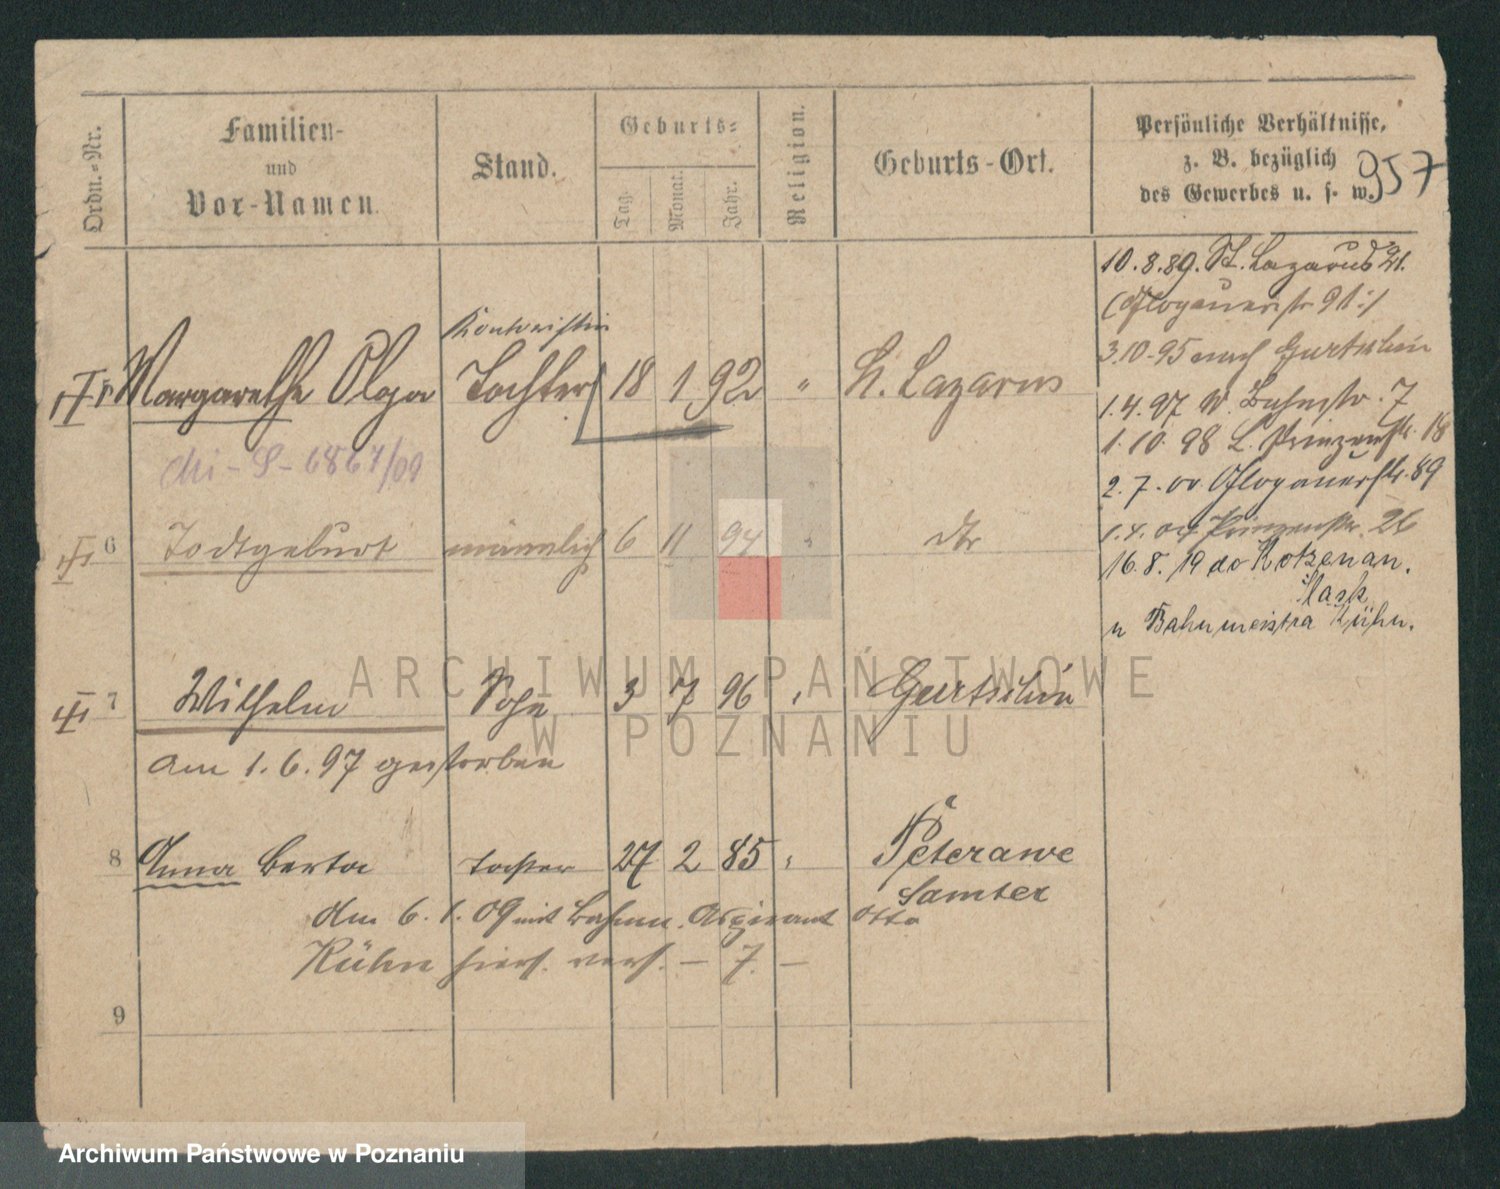 Ordn.-Nr.
Familien-
und
Vor-Namen.
Stand.
Geburts-
Tag.
Monat.
Jahr.
Religion.
Geburts-Ort.
Persönliche Verhältnisse,
z. B. bezüglich
des Gewerbes u. s. w.
957
10.8.89. St. Lazarus 21.
(Glogauerstr 91:/
3.10.95 nach Gurtschin
1.4.97 W. Bahnstr. 7
1.10.98 L. Prinzenstr. 18
2.7.00 Glogauerstr. 89
1.4.04 Prinzenstr. 26
16.8.19 do Kotzenau.
Śląsk
u Bahnmeistra Kühn.
Kontoristin
Margarethe Olga Tochter 18 1 92 " St. Lazarus
6867/09
6 Todtgeburt männlich 6 11 94 " dto
7 Wilhelm Sohn 3 7 96 " Gurtschin
am 1.6.97 gestorben
8 Anna Berta Tochter 27 2 85 " Peterawe
Samter
Am 6.1.09 mit Bahnm. Aspirant Otto
Kühn hier verh. – 7. –
9
ARCHIWUM PAŃSTWOWE
W POZNANIU
Archiwum Państwowe w Poznaniu